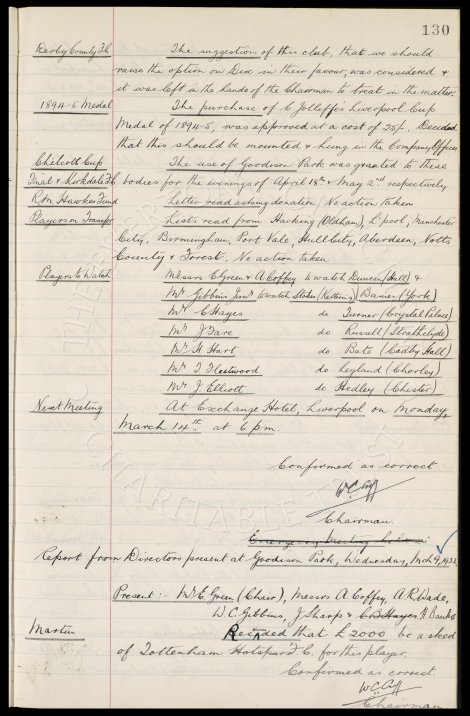 130
Derby County F.C. The suggestions of this club, that we should
raise the option on Dix in their favour, was considered &
it was left in the hands of the Chairman to treat in the matter.
1894-5 Medal The purchase of C Jolliffe's Liverpool Cup
Medal of 1894-5, was approved at a cost of 25/-. Decided
that this should be mounted & hung in the Company Offices
Chilcott Cup The use of Goodison Park was granted to these
Final & Kirkdale F.C. bodies for the evenings of April 18th & May 2nd respectively.
R.M. Hawkes Fund Letter read asking donation. No action taken
Players on Transfer Lists read from Hacking (Oldham), L'pool, Manchester
City, Birmingham, Port Vale, Hull City, Aberdeen, Notts
County & Forest. No action taken
Players to Watch Messrs E Green & A Coffey to watch Duncan (Hull) &
Mr Gibbins Junr to watch Stokes (Kettering) Baines (York)
Mr C Hayes do Turner (Crystal Palace)
Mr J Fare do Russell (Strathclyde)
Mr H Hart do Bate (Cadby Hall)
Mr T Fleetwood do Leyland (Chorley)
Mr J Elliott do Hedley (Chester)
Next Meeting At Exchange Hotel, Liverpool on Monday,
March 14th at 6 pm.
Confirmed as correct
W.C. Cuff
Chairman
Emergency Meeting held
Report from Directors present at Goodison Park, Wednesday, Mch 9, 1932.
Present: Mr E Green (Chair), Messrs A Coffey, A R Wade,
W.C. Gibbins, J Sharp & C B Hayes H Banks
Martin Decided that £2000 be asked
of Tottenham Hotspur F.C. for this player.
Confirmed as correct.
W.C. Cuff
Chairman
CHARITABLE TRUST